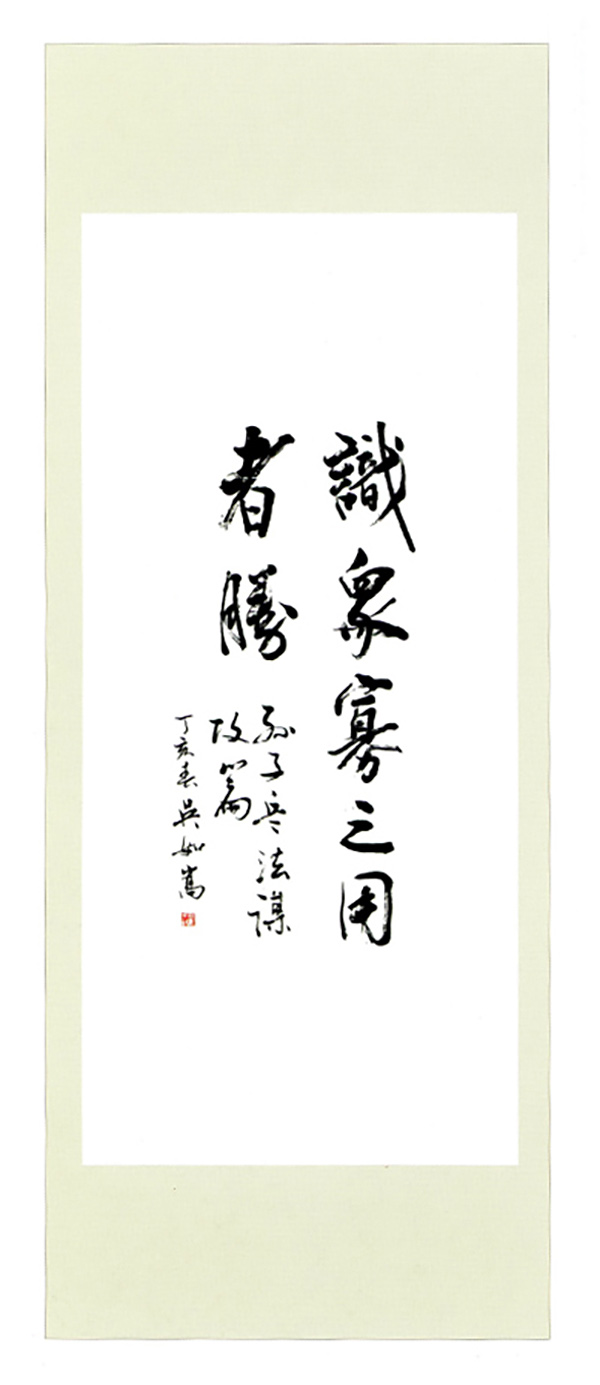 識衆寡之用
者勝
孫子兵法謀
攻篇
丁亥春吳如嵩